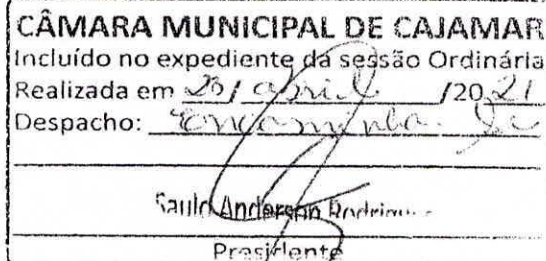 CÂMARA MUNICIPAL DE CAJAMAR
Incluído no expediente da sessão Ordinária
Realizada em / abril /2021
Despacho: Encaminha-se
Saulo Anderson Rodrigues
Presidente